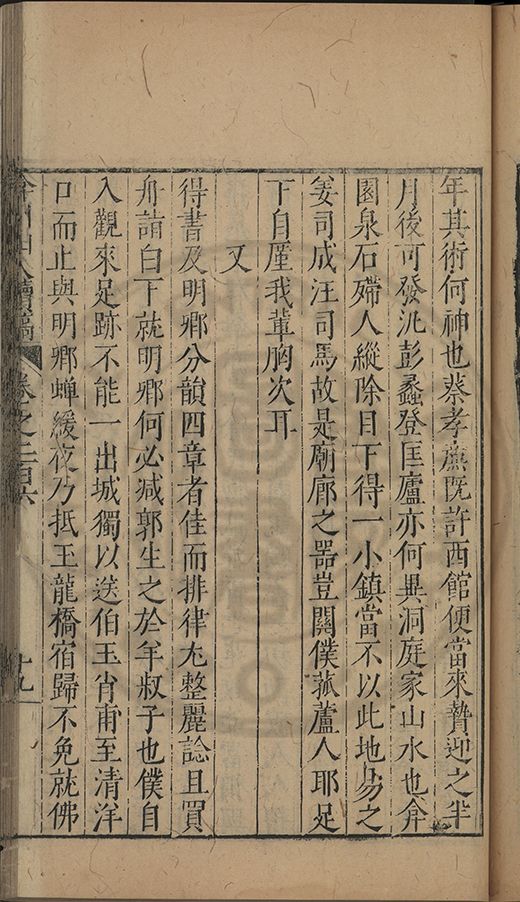 年其術何神也蔡孝廉既許西館便當來贄迎之半
月後可發汎彭蠡登匡廬亦何異洞庭家山水也弇
園泉石婦人縱除目下得一小鎮當不以此地易之
姜司成汪司馬故是廟廊之器豈關僕菰蘆人耶足
下自厪我輩胸次耳
又
得書及明卿分韻四章者佳而排律尤整麗諗且買
舟請白下就明卿何必减郭生之於羊叔子也僕自
入觀來足跡不能一出城獨以送伯玉肖甫至清洋
口而止與明卿蟬緩夜乃抵王龍橋宿歸不免就佛
弇州山人續稿
卷之二百六
十九